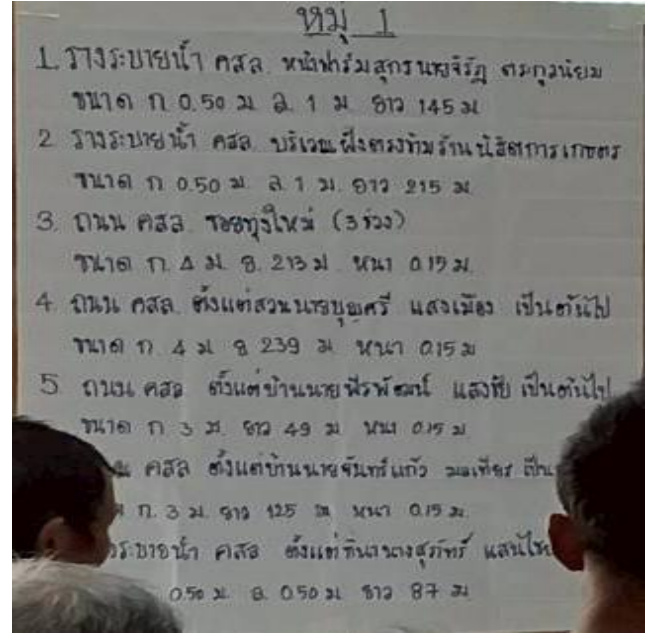 หมู่ 1
1. รางระบายน้ำ คสล. หน้าฟาร์มสุกรนายจิรัฏ ตระกูลนิยม
ขนาด ก 0.50 ม. ล. 1 ม. ยาว 145 ม
2. รางระบายน้ำ คสล. บริเวณฝั่งตรงข้ามร้านนิสิตการเกษตร
ขนาด ก 0.50 ม. ล. 1 ม. ยาว 215 ม.
3. ถนน คสล. ซอยทุ่งใหม่ (3 ช่วง)
ขนาด ก. 4 ม. ย. 213 ม. หนา 0.15 ม.
4. ถนน คสล. ตั้งแต่สวนนายบุญศรี แสงเมือง เป็นต้นไป
ขนาด ก. 4 ม ย 239 ม. หนา 0.15 ม
5. ถนน คสล ตั้งแต่บ้านนายพีรพัฒน์ แสงชัย เป็นต้นไป
ขนาด ก 3 ม. ยาว 49 ม หนา 0.15 ม.
คสล ตั้งแต่บ้านนายจันทร์แก้ว
ก. 3 ม. ยาว 125 ม หนา 0.15 ม.
ระบายน้ำ คสล ตั้งแต่ที่นานาง
0.50 ม. ล. 0.50 ม. ยาว 87 ม